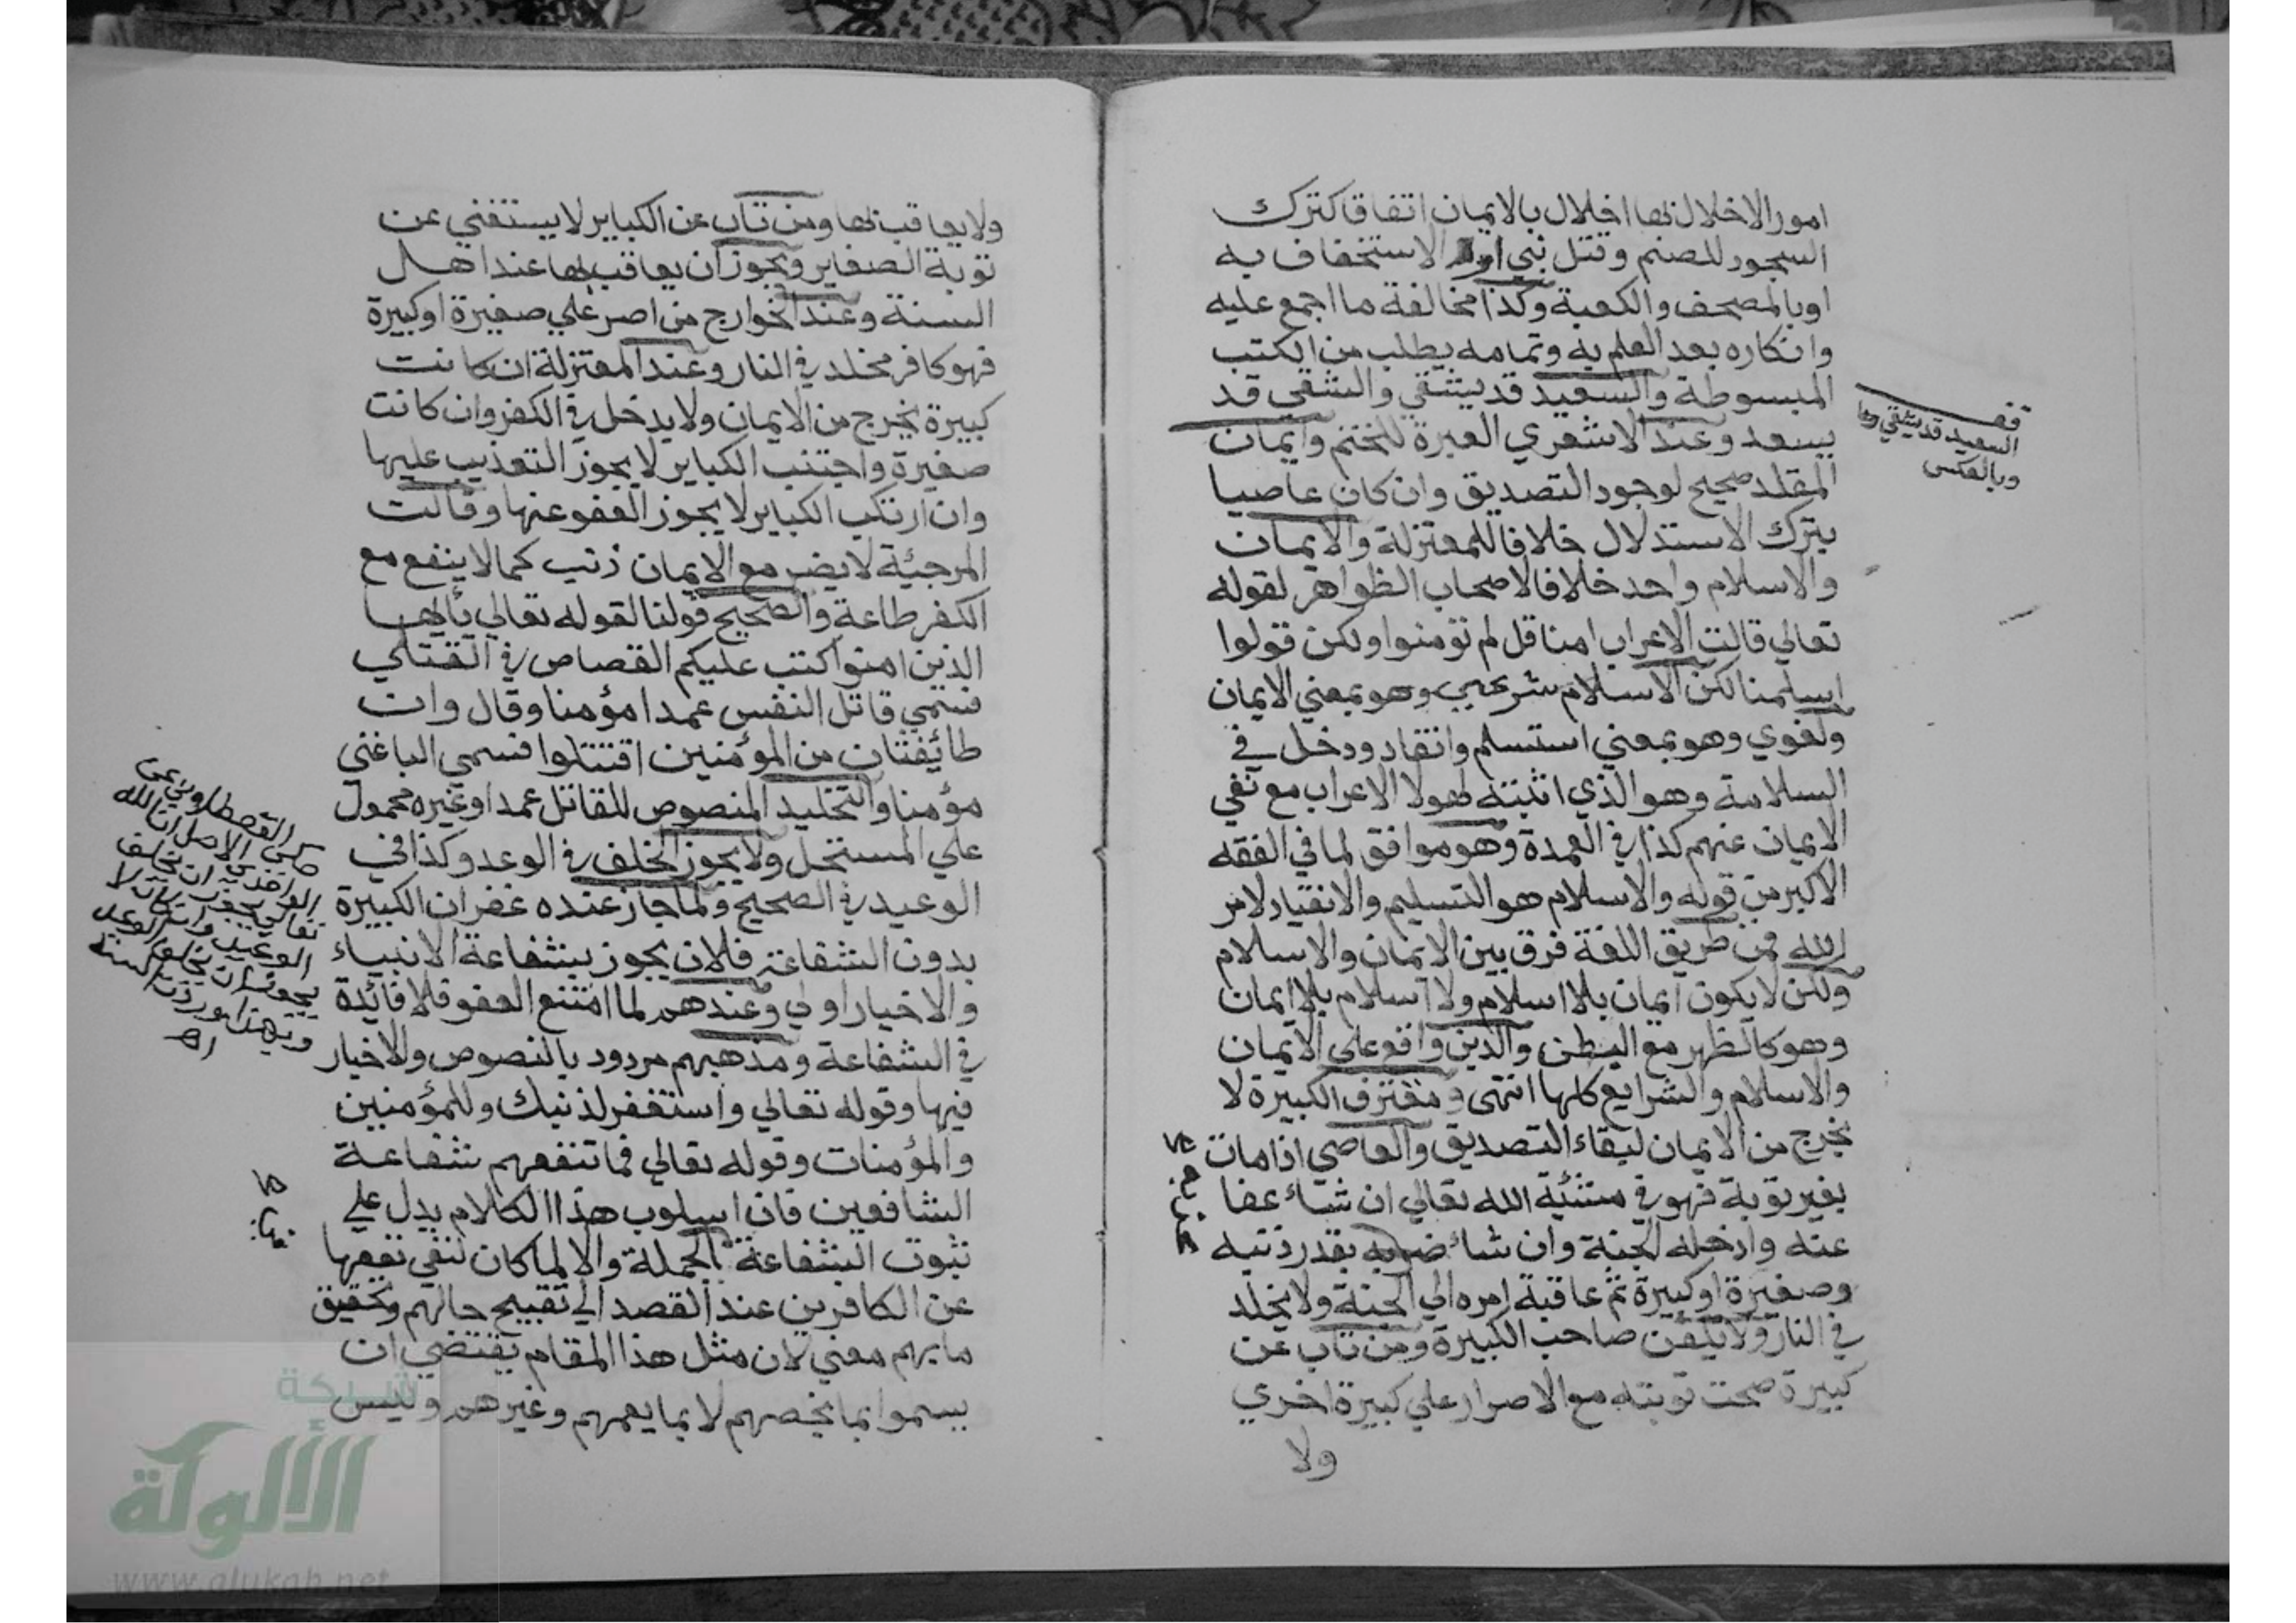 امور الاخلال بها اخلال بالايمان اتفاقا كترك
السجود للصنم وقتل نبي او الاستخفاف به
او بالمصحف والكعبة وكذا مخالفة ما اجمع عليه
وانكاره بعد العلم به وتمامه يطلب من الكتب
المبسوطة والسعيد قد يشقي والشقي قد
يسعد وعند الاشعري العبرة للختم وايمان
المقلد صحيح لوجود التصديق وان كان عاصيا
بترك الاستدلال خلافا للمعتزلة والايمان
والاسلام واحد خلافا لاصحاب الظواهر لقوله
تعالي قالت الاعراب امنا قل لم تؤمنوا ولكن قولوا
اسلمنا لكن الاسلام شرعي وهو بمعني الايمان
ولغوي وهو بمعني استسلم وانقاد ودخل في
السلامة وهو الذي اثبته لهولا الاعراب مع نفي
الايمان عنهم كذا في العمدة وهو موافق لما في الفقه
الاكبر من قوله والاسلام هو التسليم والانقياد لامر
الله فمن طريق اللغة فرق بين الايمان والاسلام
ولكن لا يكون ايمان بلا اسلام ولا اسلام بلا ايمان
وهو كالظهر مع البطن والدين واقع علي الايمان
والاسلام والشرايع كلها انتهى ومقترف الكبيرة لا
يخرج من الايمان لبقاء التصديق والعاصي اذا مات
بغير توبة فهو في مشئية الله تعالي ان شاء عفا
عنه وادخله الجنة وان شاء بقدر ذنبه
وصغيرة او كبيرة ثم عاقبة امره الي الجنة ولا يخلد
في النار ولا يكفن صاحب الكبيرة ومن تاب عن
كبيرة صحت توبته مع الاصرار علي كبيرة اخري
ولا
قف
السعيد قد يشقي
وبالعكس
ولا يعاقب بها ومن تاب عن الكباير لا يستغني عن
توبة الصغاير ويجوز ان يعاقب بها عند اهل
السنة وعند الخوارج من اصر علي صغيرة او كبيرة
فهو كافر مخلد في النار وعند المعتزلة ان كانت
كبيرة يخرج من الايمان ولا يدخل في الكفر وان كانت
صغيرة واجتنب الكباير لا يجوز التعذيب عليها
وان ارتكب الكباير لا يجوز العفو عنها وقالت
المرجئية لا يضر مع الايمان ذنب كما لا ينفع مع
الكفر طاعة والصحيح قولنا لقوله تعالي يأيها
الذين امنوا كتب عليكم القصاص في القتلي
فسمي قاتل النفس عمدا مؤمنا وقال وان
طائفتان من المؤمنين اقتتلوا فسمي الباغي
مؤمنا والتخليد المنصوص للقاتل عمدا وغيره محمول
علي المستحل ولا يجوز الخلف في الوعد وكذا في
الوعيد في الصحيح ولما جاز عنده غفران الكبيرة
بدون الشفاعة فلان يجوز بشفاعة الانبياء
والاخيار اولي وعندهم لما امتنع العفو فلا فائدة
في الشفاعة ومذهبهم مردود بالنصوص والاخبار
فيها وقوله تعالي واستغفر لذنبك وللمؤمنين
والمؤمنات وقوله تعالي فما تنفعهم شفاعة
الشافعين فان اسلوب هذا الكلام يدل علي
ثبوت الشفاعة الجملة والا لما كان لنفي نفعها
عن الكافرين عند القصد الي تقبيح حالهم وتحقيق
ما بهم معني لان مثل هذا المقام يقتضي ان
يسموا بما يخصهم لا بما يعمهم وغيرهم وليس
حكى القصطلوبي عن
الواحدي الاصل ان الله
تعالى يجوز ان يخلف
الوعيد وان كان لا
يجوز ان يخلف الوعد
وبهذا وردت السنة
اهـ
شبكة
الألوكة
www.alukah.net